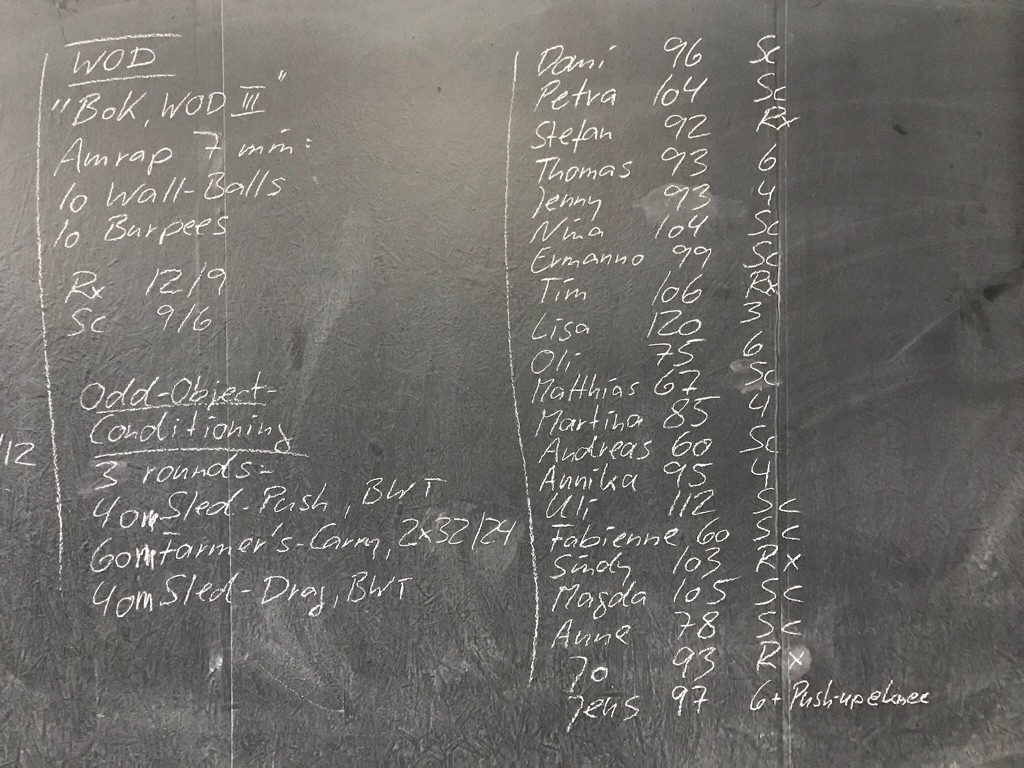 WOD
"BoK, WOD III"
Amrap 7 min:
10 Wall-Balls
10 Burpees
Rx 12/9
Sc 9/6
Odd-Object-
Conditioning
3 rounds-
40m Sled-Push, BWT
60m Farmer's-Carry, 2x32/24
40m Sled-Drag, BWT
/12
Dani 96 Sc
Petra 104 Sc
Stefan 92 Rx
Thomas 93 6
Jenny 93 4
Nina 104 Sc
Ermanno 99 Sc
Tim 106 Rx
Lisa 120 3
Oli 75 6
Matthias 67 Sc
Martina 85 4
Andreas 60 Sc
Annika 95 4
Uli 112 Sc
Fabienne 60 Sc
Sindy 103 Rx
Magda 105 Sc
Anne 78 Sc
Jo 93 Rx
Jens 97 6+ Push-up